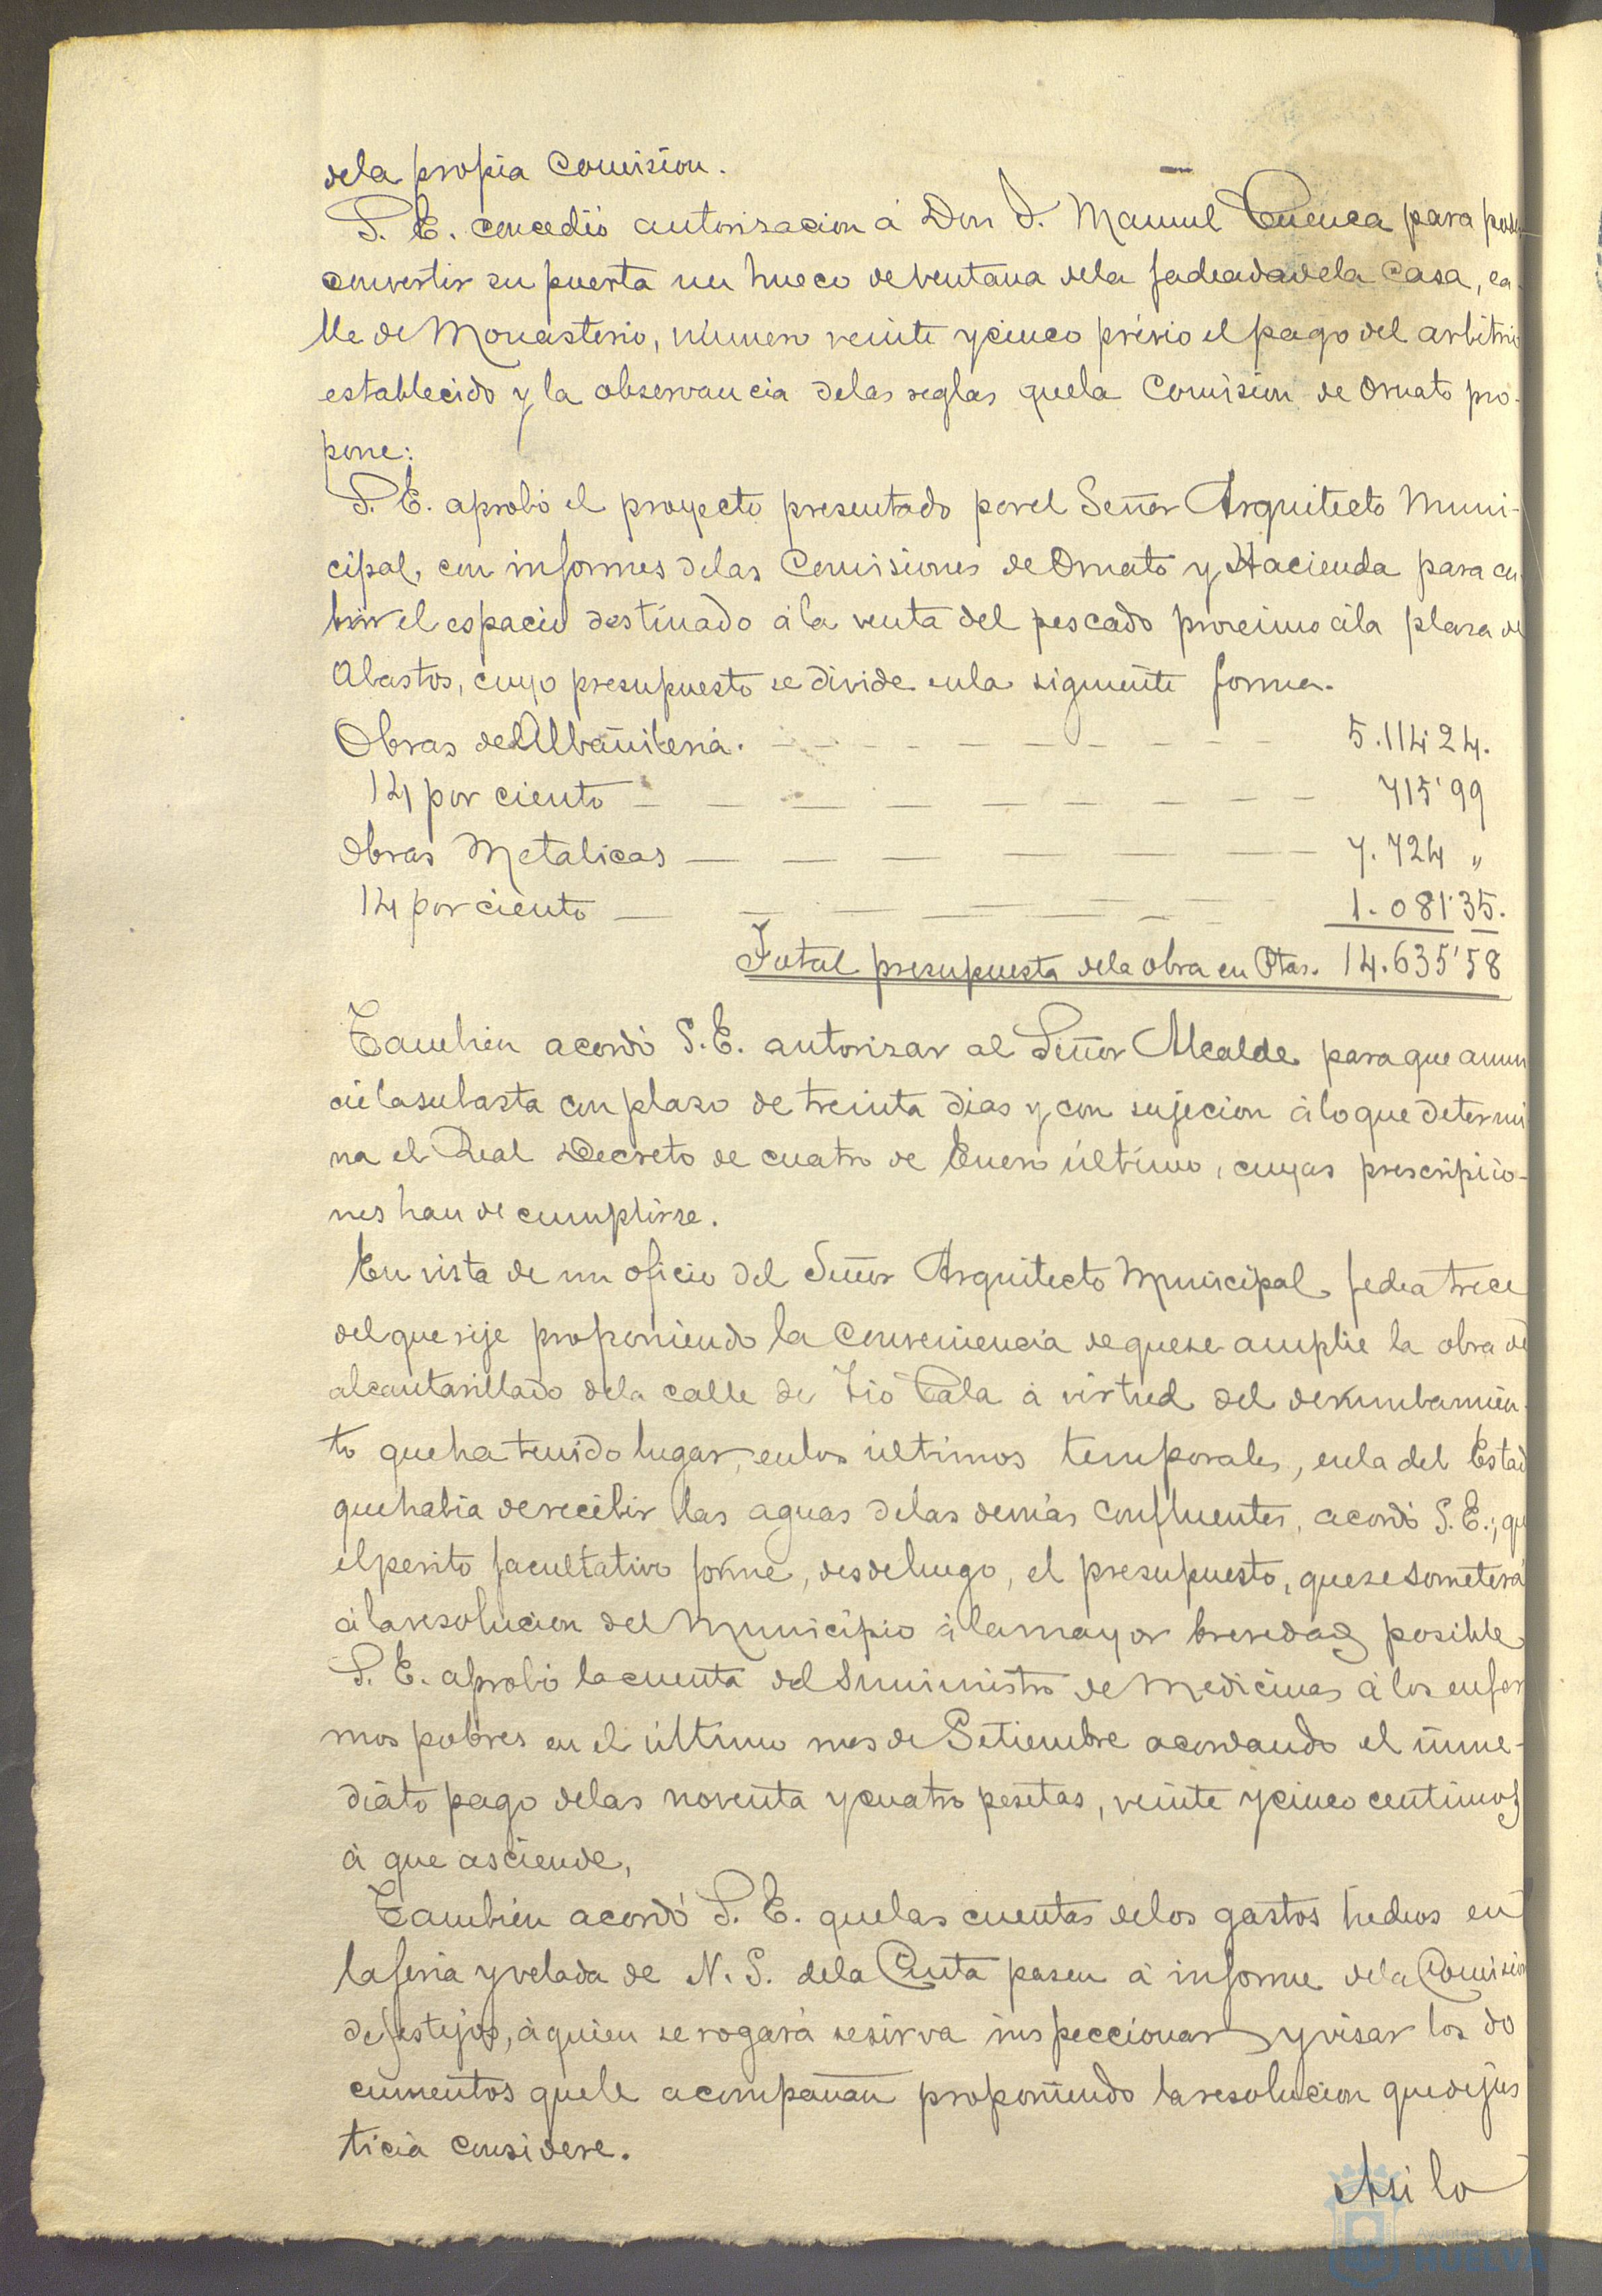 dela propia Comision.
S. E. concedió autorizacion á Don J. Manuel Cuenca para
convertir su puerta un hueco de ventana dela fachada dela Casa, ca-
lle de Monasterio, número veinte y cinco prévio el pago del arbitrio
establecido y la observancia delas reglas quela Comision de Ornato pro-
pone:
S. E. aprobó el proyecto presentado porel Señor Arquitecto Muni-
cipal, con informes delas Comisiones de Ornato y Hacienda para cu-
brir el espacio destinado á la venta del pescado procsimo ála plaza de
Abastos, cuyo presupuesto se divide enla siguiente forma.
Obras de Albañileria. 5.114'24.
14 por ciento 715'99
Obras Metalicas 7.724 "
14 por ciento 1.081'35.
Total presupuesta dela obra en Ptas. 14.635'58
Tambien acordó S.E. autorizar al Señor Alcalde para que anun
cie la subasta con plazo de treinta dias y con sujecion á lo que determi
na el Real Decreto de cuatro de Enero último, cuyas prescripcio-
nes han de cumplirse.
En vista de un oficio del Señor Arquitecto Municipal fecha trece
del que rije proponiendo la conveniencia de que se amplie la obra de
alcantarillado dela calle de Tio Pala á virtud del derrumbamien-
to que ha tenido lugar, enlos últimos temporales, enla del Estad
que habia de recibir las aguas delas demás confluentes, acordó S. E.; que
el perito facultativo forme, desde luego, el presupuesto, que se someterá
á la resolucion del Municipio á la mayor brevedad posible
S. E. aprobó la cuenta del Suministro de Medicinas á los enfer
mos pobres en el último mes de Setiembre acordando el inme-
diato pago delas noventa y cuatro pesetas, veinte y cinco centimos
á que asciende,
Tambien acordó S. E. quelas cuentas delos gastos hechos en
la feria y velada de N. S. dela Cinta pasen á informe dela Comision
de festejos, á quien se rogará se sirva inspeccionar y visar los do
cumentos quele acompañan proponiendo la resolucion que de jus
ticia considere.
Asi lo
Ayuntamiento
HUELVA